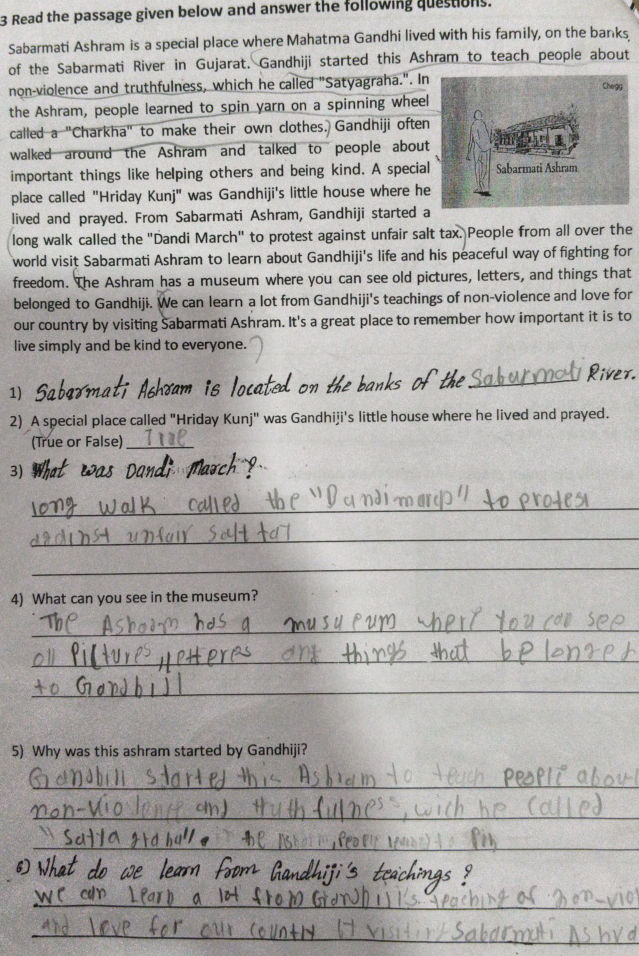 3 Read the passage given below and answer the following questions.
Sabarmati Ashram is a special place where Mahatma Gandhi lived with his family, on the banks
of the Sabarmati River in Gujarat. Gandhiji started this Ashram to teach people about
non-violence and truthfulness, which he called "Satyagraha.". In
the Ashram, people learned to spin yarn on a spinning wheel
called a "Charkha" to make their own clothes. Gandhiji often
walked around the Ashram and talked to people about
important things like helping others and being kind. A special
place called "Hriday Kunj" was Gandhiji's little house where he
lived and prayed. From Sabarmati Ashram, Gandhiji started a
Chegg
Sabarmati Ashram
long walk called the "Dandi March" to protest against unfair salt tax. People from all over the
world visit Sabarmati Ashram to learn about Gandhiji's life and his peaceful way of fighting for
freedom. The Ashram has a museum where you can see old pictures, letters, and things that
belonged to Gandhiji. We can learn a lot from Gandhiji's teachings of non-violence and love for
our country by visiting Sabarmati Ashram. It's a great place to remember how important it is to
live simply and be kind to everyone.
1) Sabarmati Ashram is located on the banks of the Sabarmati River.
2) A special place called "Hriday Kunj" was Gandhiji's little house where he lived and prayed.
(True or False) True
3) What was Dandi March ?
long walk called the "Dandi march" to protest
against unfair salt tax
4) What can you see in the museum?
The Ashram has a musueum where you can see
old Pictures, letteres and things that belonged
to Gandhiji
5) Why was this ashram started by Gandhiji?
Gandhiji started this Ashram to teach people about
non-violence and truthfulness, wich he called
"Satyagraha". the Ashram, people learned to
6) What do we learn from Gandhiji's teachings ?
We can Learn a lot from Gandhiji's teaching of non-viol
and love for our country visiting Sabarmati Ashra